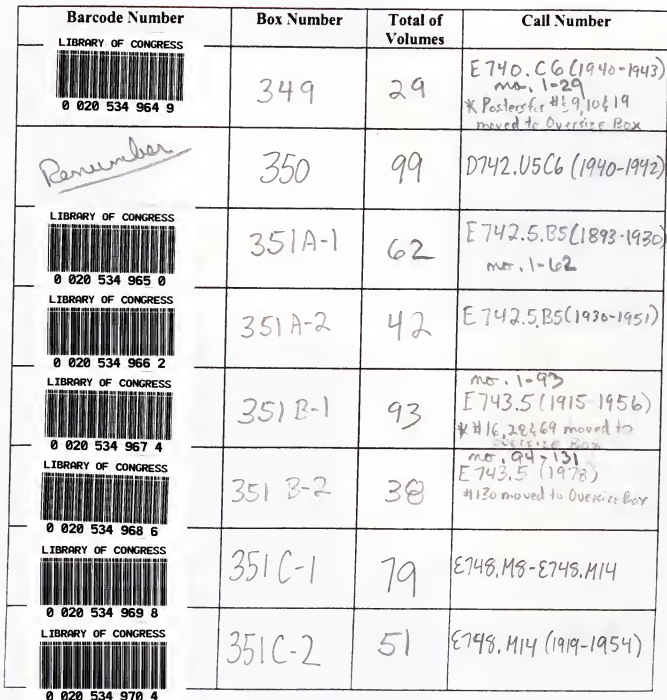 Barcode Number Box Number Total of Volumes Call Number
LIBRARY OF CONGRESS
0 020 534 964 9
349
29
E740.C6 (1940-1943)
no. 1-29
* Posters for #s 9, 10 & 19
moved to Oversize Box
Renumber
350
99
D742.U5C6 (1940-1942)
LIBRARY OF CONGRESS
0 020 534 965 0
351A-1
62
E742.5.B5(1893-1930)
no. 1-62
LIBRARY OF CONGRESS
0 020 534 966 2
351A-2
42
E742.5.B5(1930-1951)
LIBRARY OF CONGRESS
0 020 534 967 4
351B-1
93
no. 1-93
E743.5 (1915-1956)
* #16, 28 & 69 moved to
oversize Box
LIBRARY OF CONGRESS
0 020 534 968 6
351 B-2
38
no. 94-131
E743.5 (1978)
#130 moved to Oversize Box
LIBRARY OF CONGRESS
0 020 534 969 8
351C-1
79
E748.M8-E748.M14
LIBRARY OF CONGRESS
0 020 534 970 4
351C-2
51
E748.M14 (1919-1954)